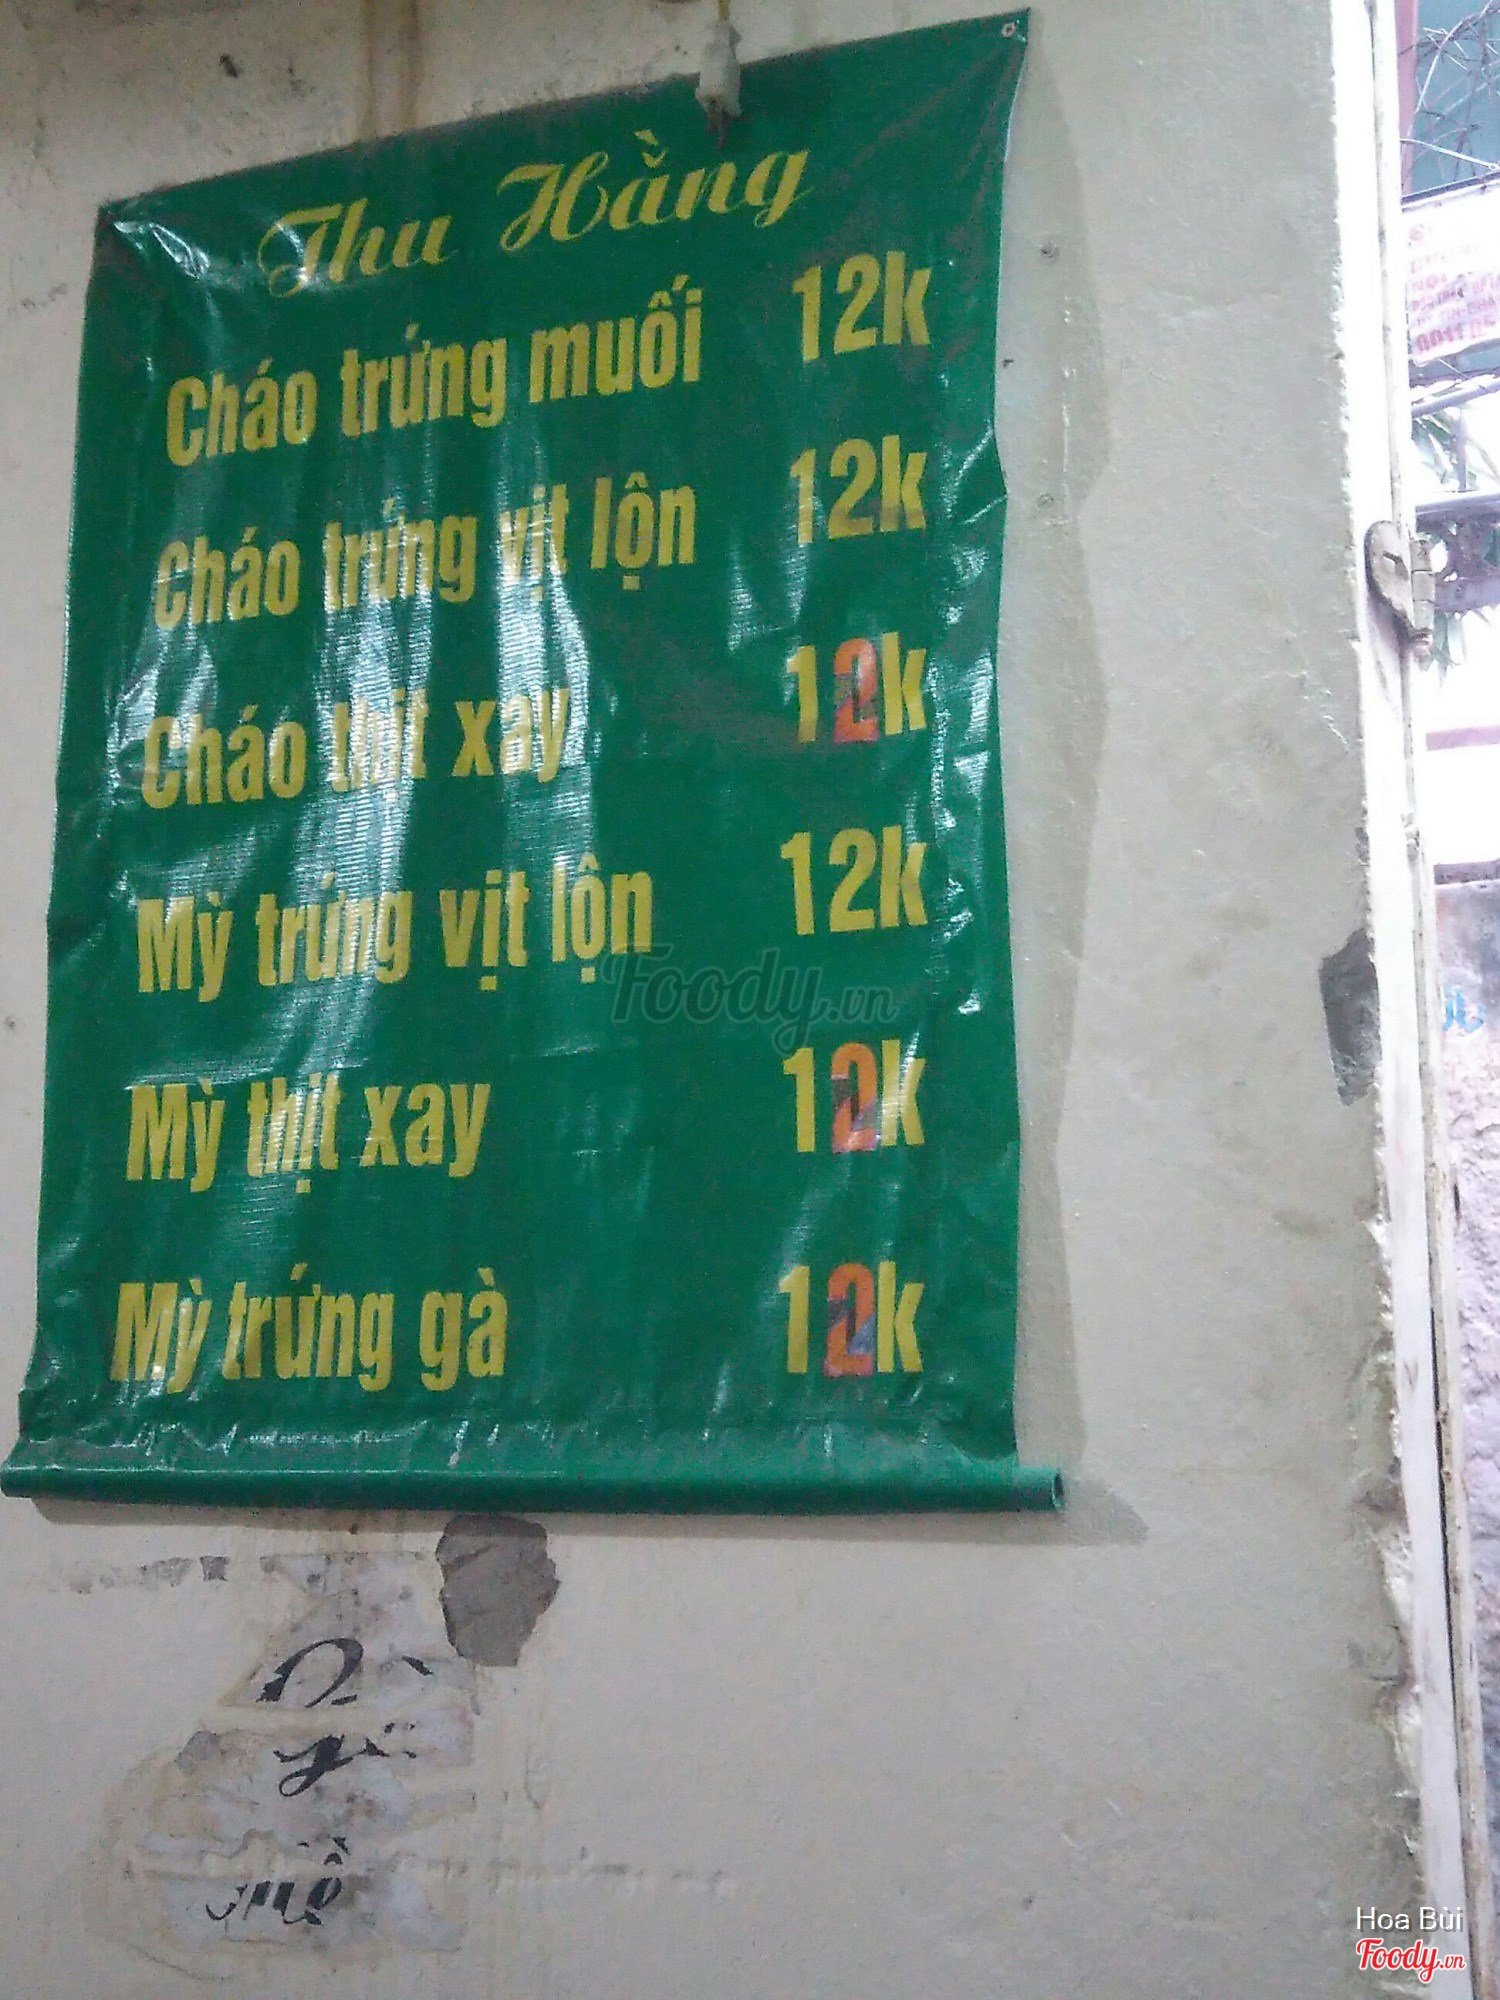 Thu Hằng
Cháo trứng muối 12k
Cháo trứng vịt lộn 12k
Cháo thịt xay 12k
Mỳ trứng vịt lộn 12k
Mỳ thịt xay 12k
Mỳ trứng gà 12k
Foody.vn
Hoa Bùi
Foody.vn